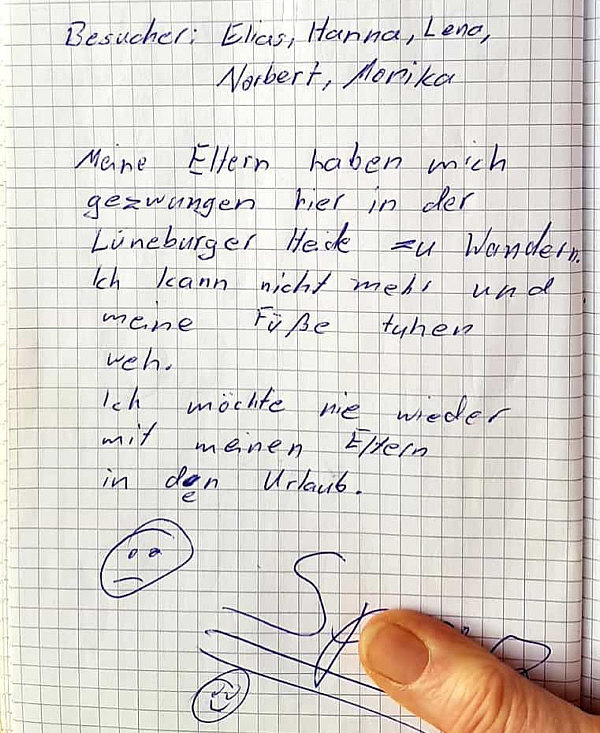 Besucher: Elias, Hanna, Lena,
Norbert, Monika
Meine Eltern haben mich
gezwungen hier in der
Lüneburger Heide zu Wandern.
Ich kann nicht mehr und
meine Füße tuhen
weh.
Ich möchte nie wieder
mit meinen Eltern
in den Urlaub.